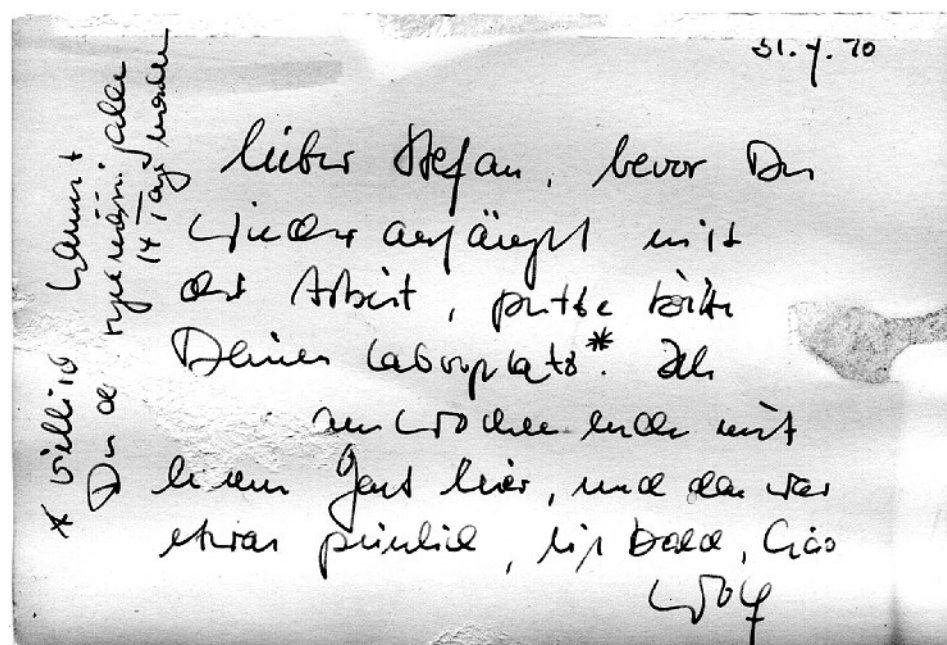 31.7.70
Lieber Stefan, bevor Du
wieder anfängst mit
der Arbeit, putze bitte
Deinen Laborplatz*. Ich
am Wochenende mit
einem Gast hier, und das war
etwas peinlich, bis bald, Ciao
Wolf
* Vielleicht kannst
Du das regelmäßig alle
14 Tage machen